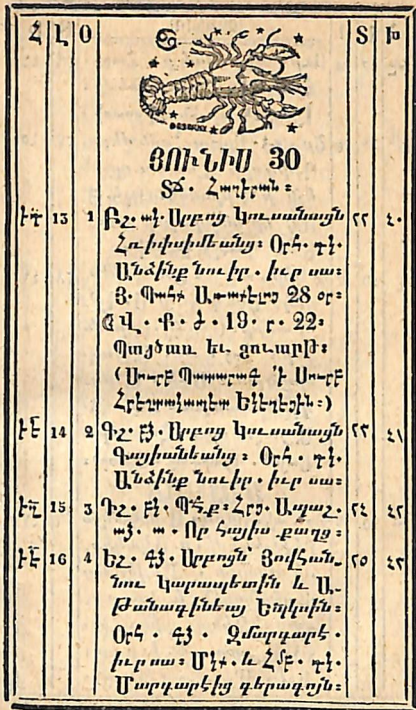 Հ Լ Օ Տ Խ
ՅՈՒՆԻՍ 30
Տճ. Հաղիրան։
13 1 Բշ. ակ. Սրբոց Կուսանացն
Հռիփսիմեանց։ Օրհ. դկ.
Անձինք նուիր. իւր սա։
Յ. Պահք Առաքելոց 28 օր։
Վ. Ք. ժ. 19. ր. 22։
Պայծառ եւ զուարթ։
(Սուրբ Պատարագ ՚ի Սուրբ
Հրեշտակապետ Եկեղեցին։)
14 2 Գշ. բձ. Սրբոց Կուսանացն
Գայիանեանց։ Օրհ. դկ.
Անձինք նուիր. իւր սա։
15 3 Դշ. բկ. Պհ.ք։ Հրց. Ապաշ.
ակ. ա. Որ հայիս քաղց։
16 4 Եշ. գձ. Սրբոցն՝ Յովհան-
նու Կարապետին և Ա-
թանագինեայ Եպկսին։
Օրհ. գձ. Զմարգարէ.
իւր սա։ Մկտ. և Համբ. դկ.
Մարգարէից գերագոյն։